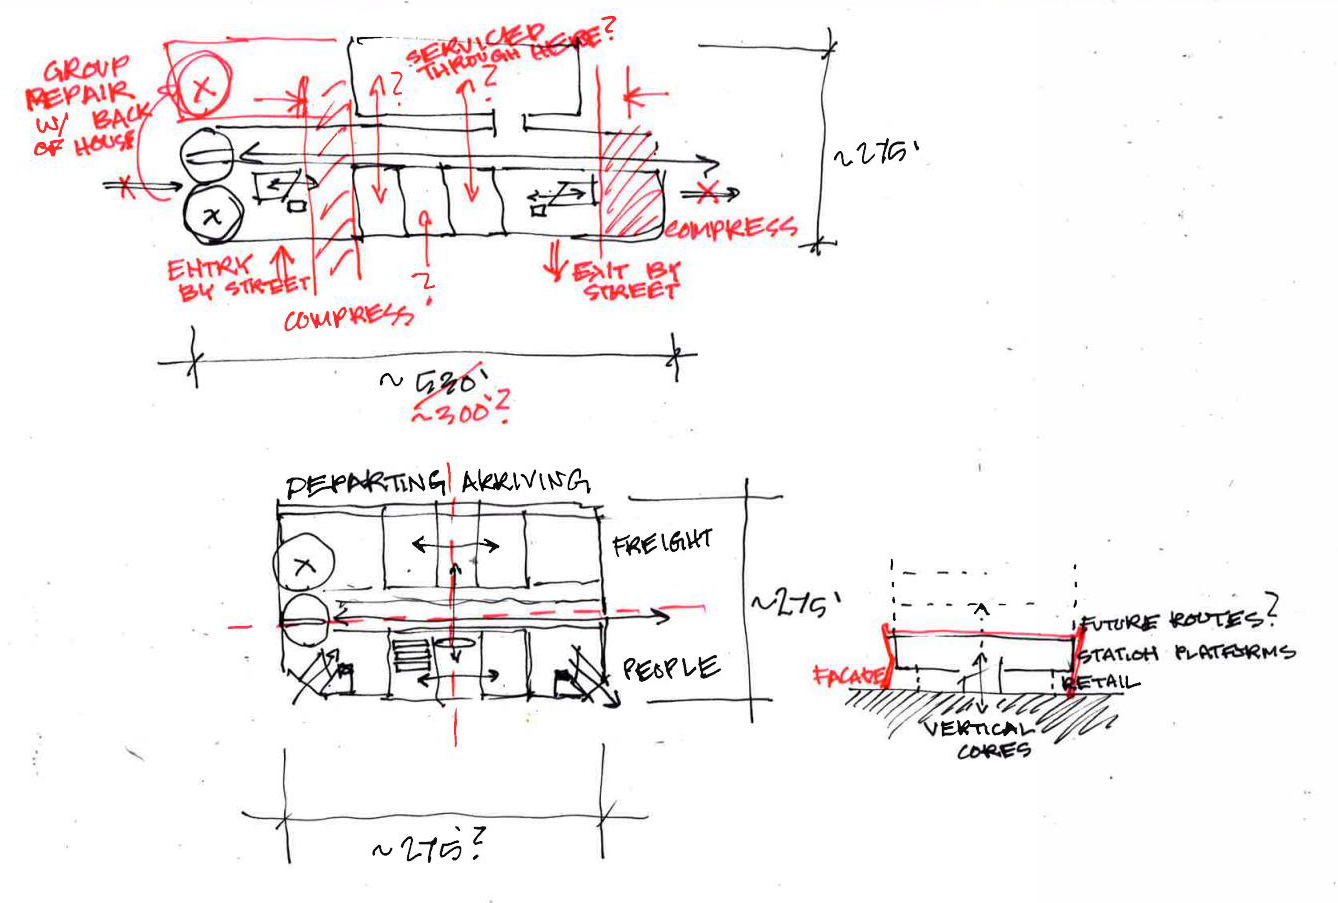 GROUP
REPAIR
W/ BACK
OF HOUSE
X
SERVICED
THROUGH HERE?
?
?
~275'
X
ENTRY
BY STREET
?
COMPRESS
EXIT BY
STREET
COMPRESS
~ 530'
~300'?
DEPARTING ARRIVING
X
FREIGHT
PEOPLE
~275'
~275'?
FUTURE ROUTES?
STATION PLATFORMS
RETAIL
FACADE
VERTICAL
CORES